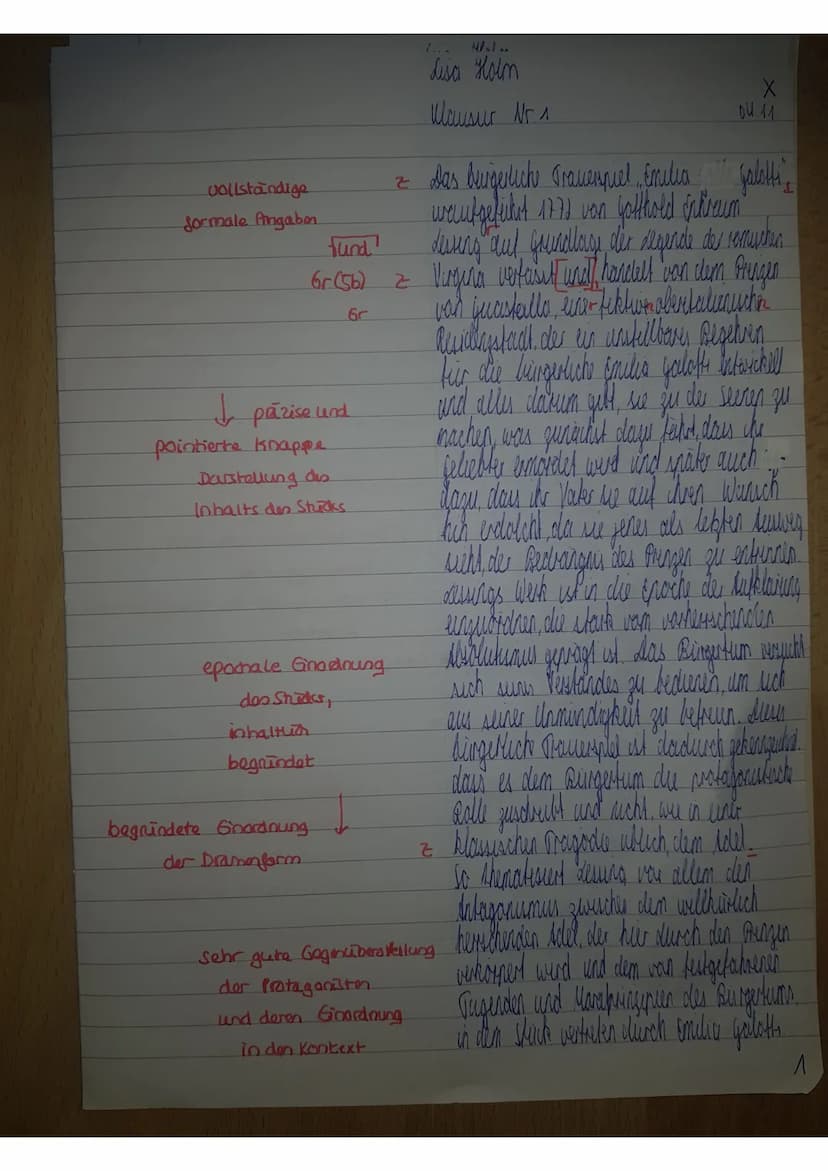 Lisa Holm
Klausur Nr. 1
X
04.11
Das bürgerliche Trauerspiel „Emilia Galotti“,
uraufgeführt 1772 von Gotthold Ephraim
Lessing auf Grundlage der Legende der römischen
Virginia verfasst [und], handelt von dem Prinzen
von Guastalla, einer fiktiven oberitalienischen
Residenzstadt, der ein unstillbares Begehren
für die bürgerliche Emilia Galotti entwickelt
und alles darum gibt, sie zu der Seinen zu
machen, was zunächst dazu führt, dass ihr
Geliebter ermordet wird und später auch
dazu, dass ihr Vater sie auf ihren Wunsch
hin erdolcht, da sie jenes als letzten Ausweg
sieht, der Bedrängnis des Prinzen zu entrinnen.
Lessings Werk ist in die Epoche der Aufklärung
einzuordnen, die stark vom vorherrschenden
Absolutismus geprägt ist. Das Bürgertum versucht
sich seines Verstandes zu bedienen, um sich
aus seiner Unmündigkeit zu befreien.
bürgerliche Trauerspiel ist dadurch gekennzeichnet,
dass es dem Bürgertum die protagonistische
Rolle zuschreibt und nicht, wie in einer
klassischen Tragödie üblich, dem Adel.
So thematisiert Lessing vor allem den
Antagonismus zwischen dem willkürlich
herrschenden Adel, der hier durch den Prinzen
verkörpert wird und dem von festgefahrenen
Tugenden und Moralprinzipien des Bürgertums,
in dem Stück vertreten durch Emilia Galotti
1
vollständige
formale Angaben
Z
fund
Gr (Sb) Z
Gr
↓ präzise und
pointierte knappe
Darstellung des
Inhalts des Stücks
epochale Einordnung
des Stücks,
inhaltlich
begründet
begründete Einordnung ↓
der Dramenform
Z
sehr gute Gegenüberstellung
der Protagonisten
und deren Einordnung
in den Kontext